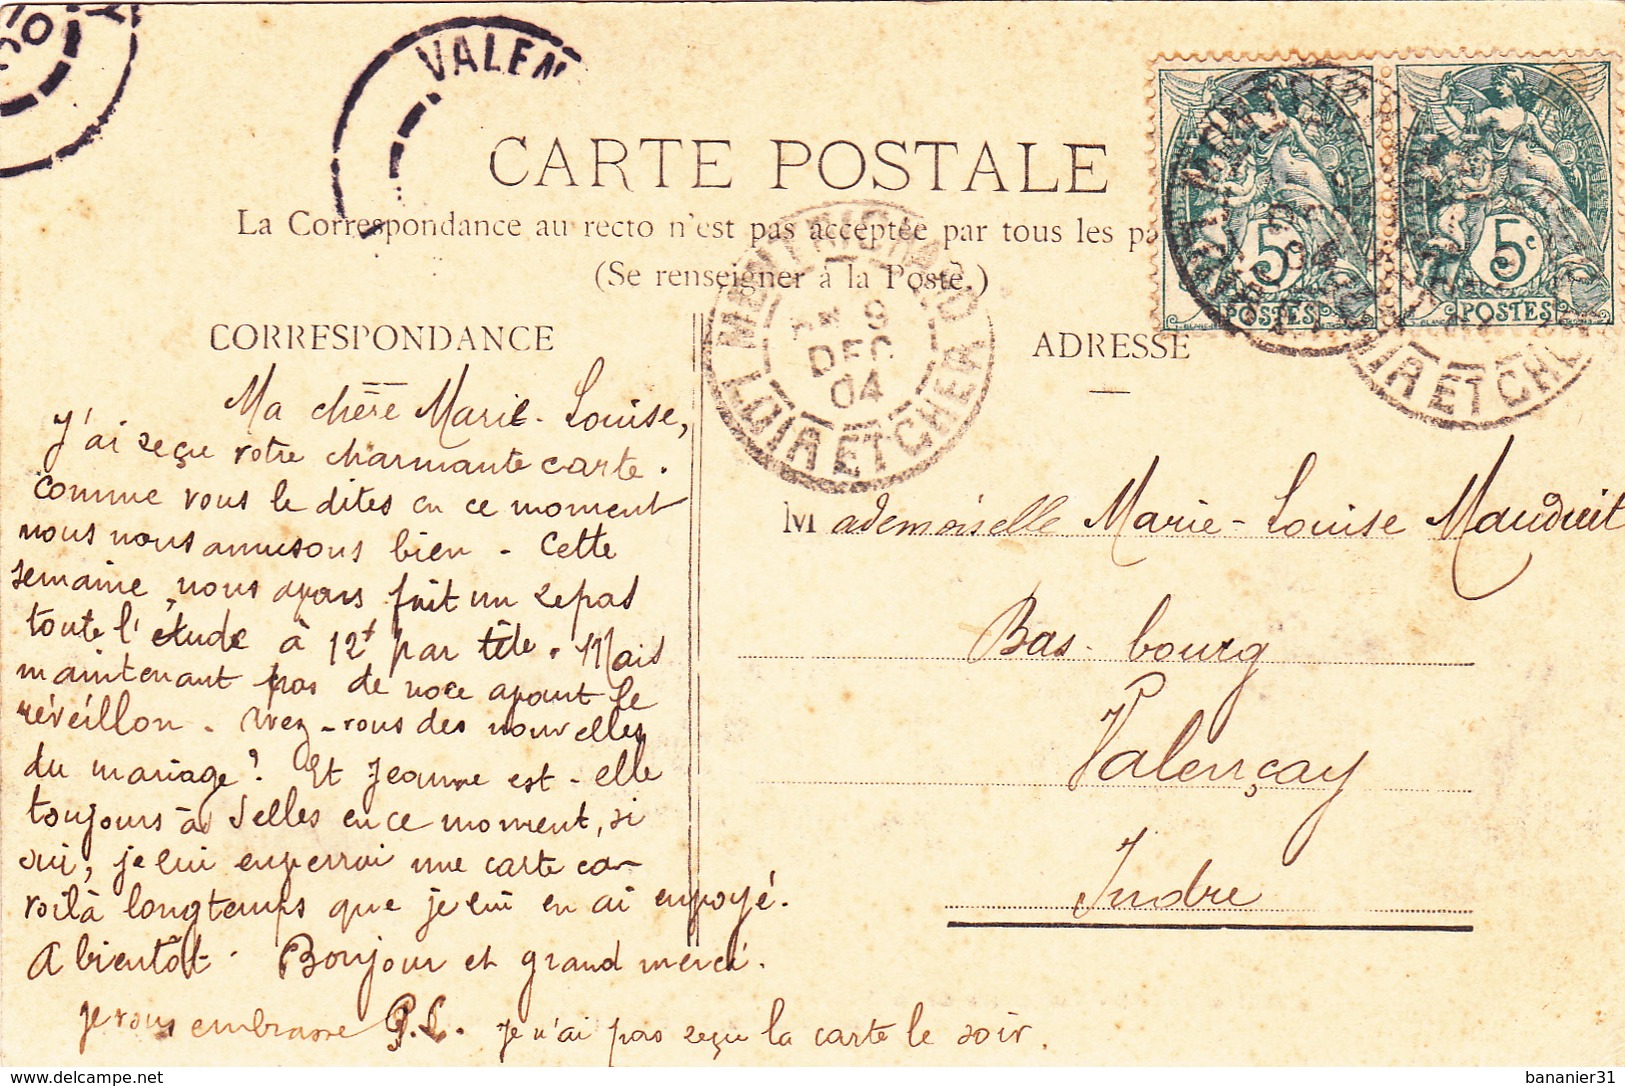 VALEN
CARTE POSTALE
La Correspondance au recto n'est pas acceptée par tous les pa
(Se renseigner à la Poste.)
5c
POSTES
5c
POSTES
9
DEC
04
LOIR ET CHER
IR ET CHE
CORRESPONDANCE
Ma chère Marie-Louise,
J'ai reçu votre charmante carte.
Comme vous le dites en ce moment
nous nous amusons bien - Cette
semaine, nous avons fait un repas
toute l'étude à 12f par tête. Mais
maintenant pas de noce avant le
réveillon. Avez-vous des nouvelles
du mariage? Et Jeanne est-elle
toujours à Selles en ce moment, si
oui, je lui enverrai une carte car
voilà longtemps que je lui en ai envoyé.
A bientôt. Bonjour et grand merci.
Je vous embrasse P.L. Je n'ai pas reçu la carte le soir.
ADRESSE
Mademoiselle Marie-Louise Mauduit
Bas-bourg
Valençay
Indre
bananier31